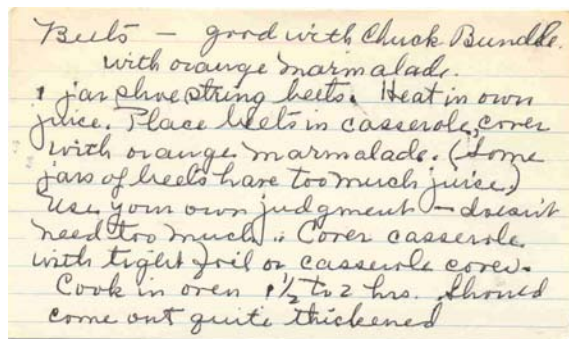 Beets — good with Chuck Bundle.
with orange marmalade.
1 jar shoestring beets. Heat in own
juice. Place beets in casserole, cover
with orange marmalade. (Some
jars of beets have too much juice.)
Use your own judgment — doesn't
need too much. Cover casserole
with tight foil or casserole cover.
Cook in oven 1 1/2 to 2 hrs. Should
come out quite thickened